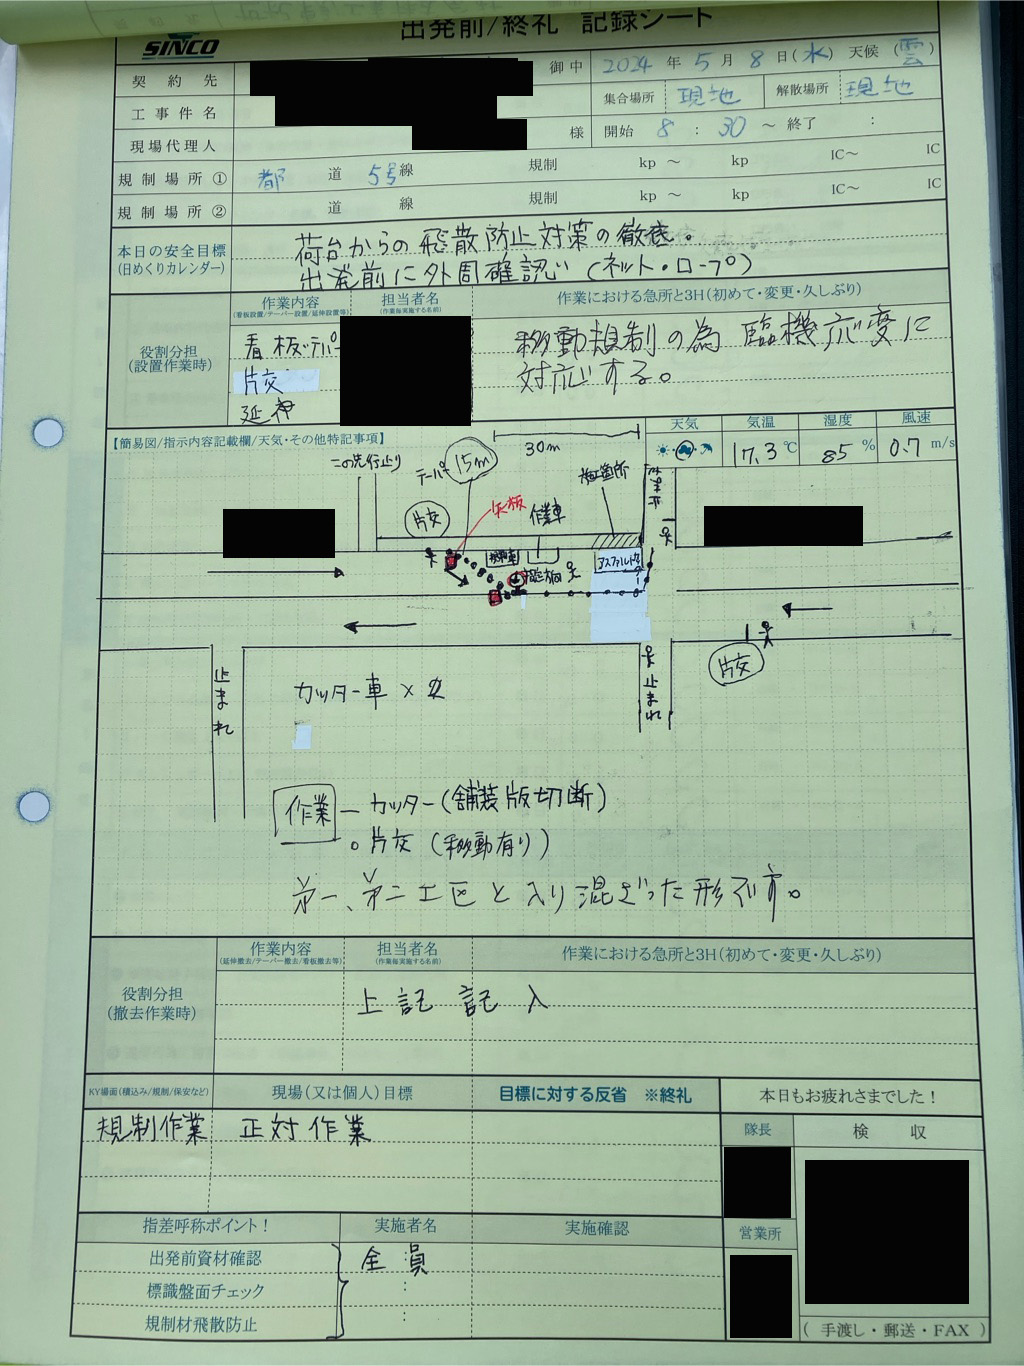 出発前/終礼 記録シート
SINCO
契約先 御中 2024年5月8日(水) 天候(雲)
工事件名 集合場所 現地 解散場所 現地
現場代理人 様 開始 8:30～終了 :
規制場所① 都道5号線 規制 kp～ kp IC～ IC
規制場所② 道 線 規制 kp～ kp IC～ IC
本日の安全目標
(日めくりカレンダー)
荷台からの飛散防止対策の徹底。
出発前に外周確認い(ネット・ロープ)
役割分担
(設置作業時)
作業内容 担当者名 作業における急所と3H(初めて・変更・久しぶり)
(看板設置/テーパー設置/延伸設置等) (作業毎実施する名前)
看板・テパー
片交
延伸
移動規制の為臨機応変に
対応する。
【簡易図/指示内容記載欄/天気・その他特記事項】
天気 気温 湿度 風速
17.3℃ 85% 0.7m/s
30m
この先行止り
テーパー 15m
施工箇所
止まれ
矢板
作業車
片交
アスファルト
片交
止まれ
止まれ
カッター車×2
作業 カッター(舗装版切断)
。片交(移動有り)
第一、第二工区と入り混ざった形です。
役割分担
(撤去作業時)
作業内容 担当者名 作業における急所と3H(初めて・変更・久しぶり)
(延伸撤去/テーパー撤去/看板撤去等) (作業毎実施する名前)
上記記入
KY場面(積込み/規制/保安など) 現場(又は個人)目標 目標に対する反省 ※終礼 本日もお疲れさまでした!
規制作業 正対作業
隊長 検収
営業所
指差呼称ポイント! 実施者名 実施確認
出発前資材確認 全員
標識盤面チェック :
規制材飛散防止 :
(手渡し・郵送・FAX)